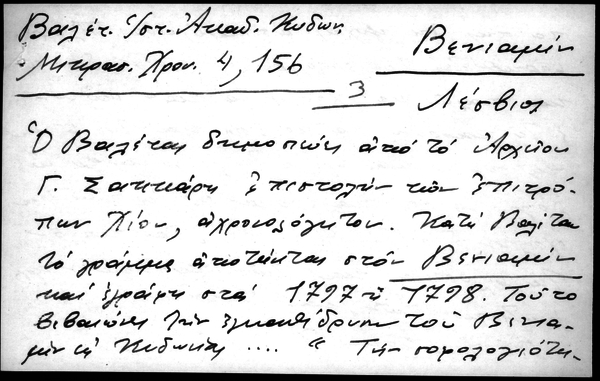 Βαλέτ. Ἱστ. Ἀκαδ. Κυδων.
Μικρασ. Χρον. 4, 156
Βενιαμὶν
3 Λέσβιος
Ὁ Βαλέτας δημοσιεύει ἀπὸ τὸ Ἀρχεῖον
Γ. Σακκάρη ἐπιστολὴν τῶν ἐπιτρό-
πων Χίου, ἀχρονολόγητον. Κατὰ Βαλέταν
τὸ γράμμα ἀποτείνεται στὸν Βενιαμὶν
καὶ ἐγράφη στὰ 1797 ἢ 1798. Τοῦτο
βεβαιώνει τὴν ἐγκαθίδρυσιν τοῦ Βενια-
μὶν εἰς Κυδωνίας .... " Τὴν σοφολογιότη-